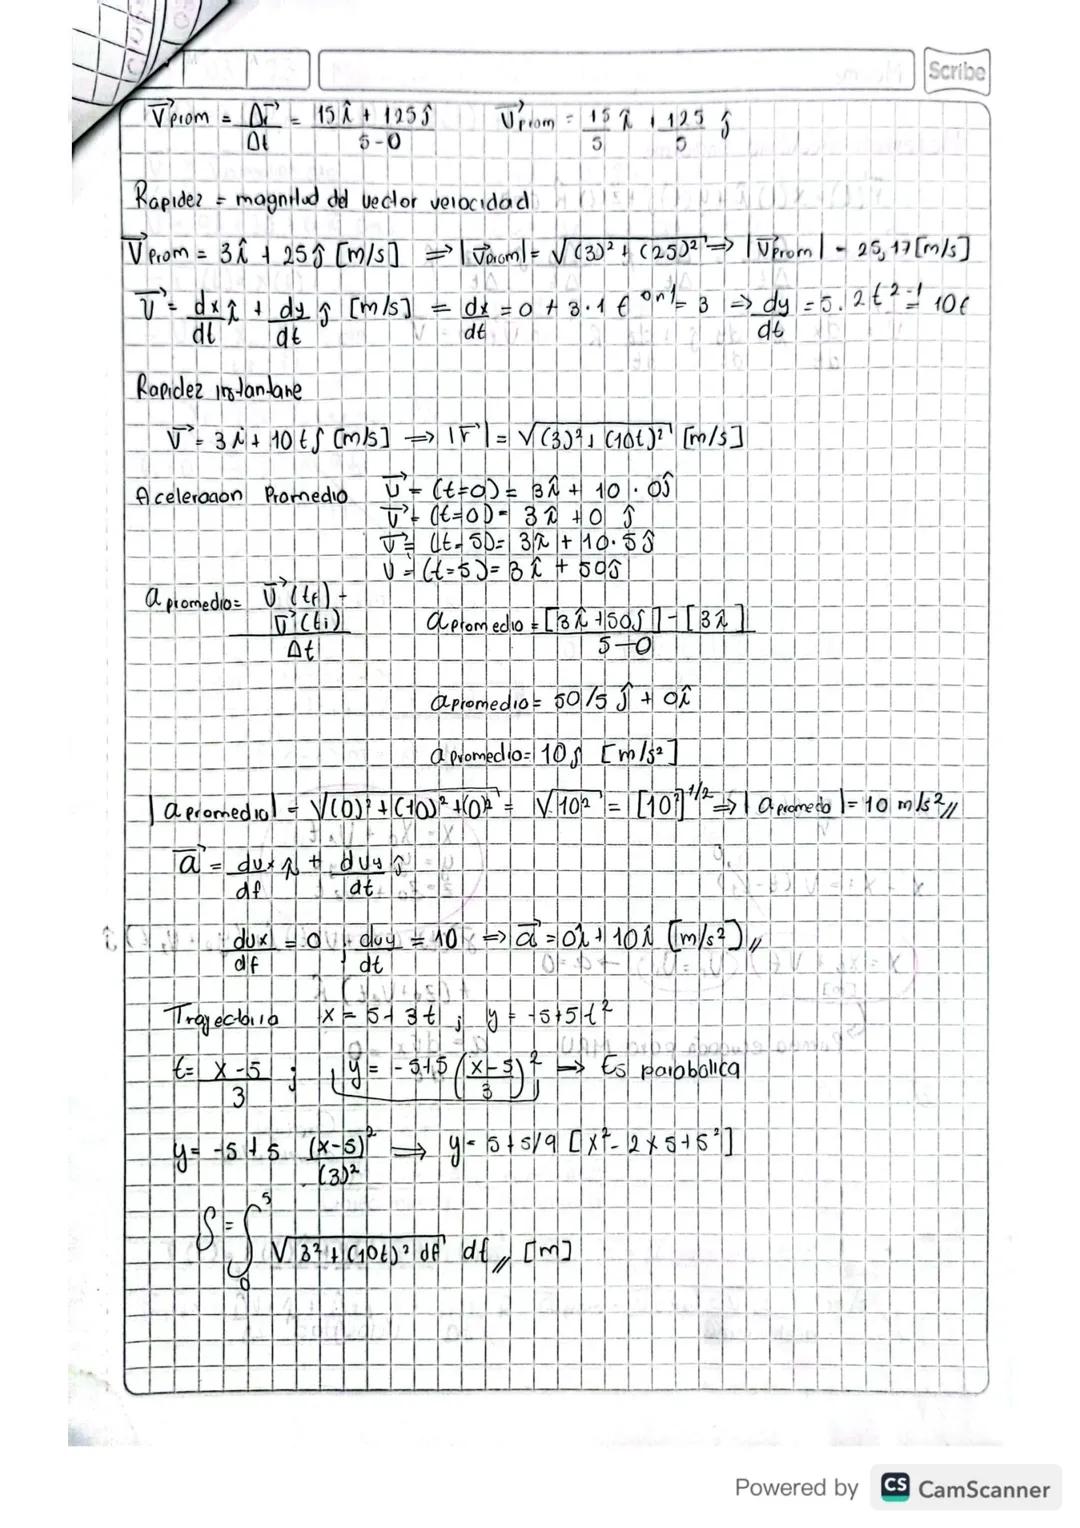 Scribe
V⃗prom = Δr⃗/Δt = (15î + 125ĵ)/(5-0)    V⃗prom = 15/5 î + 125/5 ĵ
Rapidez = magnitud del vector velocidad
V⃗prom = 3î + 25ĵ [m/s] ⇒ |v⃗prom| = √(3)² + (25)² ⇒ |V⃗prom| = 25,17 [m/s]
v⃗ = dx/dt î + dy/dt ĵ [m/s] = dx/dt = 0 + 3·1 t⁰ⁿ¹ = 3 ⇒ dy/dt = 5·2t²⁻¹ = 10t
Rapidez instantane
v⃗ = 3î + 10tĵ [m/s] ⇒ |v⃗| = √(3)² + (10t)² [m/s]
Aceleracion Promedio    v⃗ = (t=0) = 3î + 10 · 0ĵ
v⃗ = (t=0) = 3î + 0 ĵ
v⃗ = (t=5) = 3î + 10·5ĵ
v = (t=5) = 3î + 50ĵ
a promedio = (v⃗(tf) + v⃗(ti))/Δt    a promedio = ([3î + 50ĵ] - [3î])/(5-0)
a promedio = 50/5 ĵ + 0î
a promedio = 10ĵ [m/s²]
|a promedio| = √(0)² + (10)² + (0)² = √10² = [10²]^1/2 ⇒ |a promedio| = 10 m/s² //
a⃗ = dvx/dt î + dvy/dt ĵ
dvx/dt = 0 , dvy/dt = 10 ⇒ a⃗ = 0î + 10î [m/s²] //
Trayectoria    x = 5 + 3t ; y = -5+5t²
t = (x-5)/3 ; y = -5+5 ((x-5)/3)² → Es parabolica
y = -5 + 5 (x-5)²/(3)² → y = 5+5/9 [x² - 2x5+5²]
S = ∫₀⁵ √3² + (10t)² dt dt // [m]
Powered by CS CamScanner